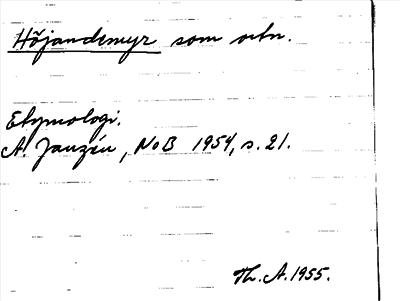 Höjandemyr som ortn.
Etymologi.
A. Janzén, NoB 1954, s. 21.
Th. A. 1955.